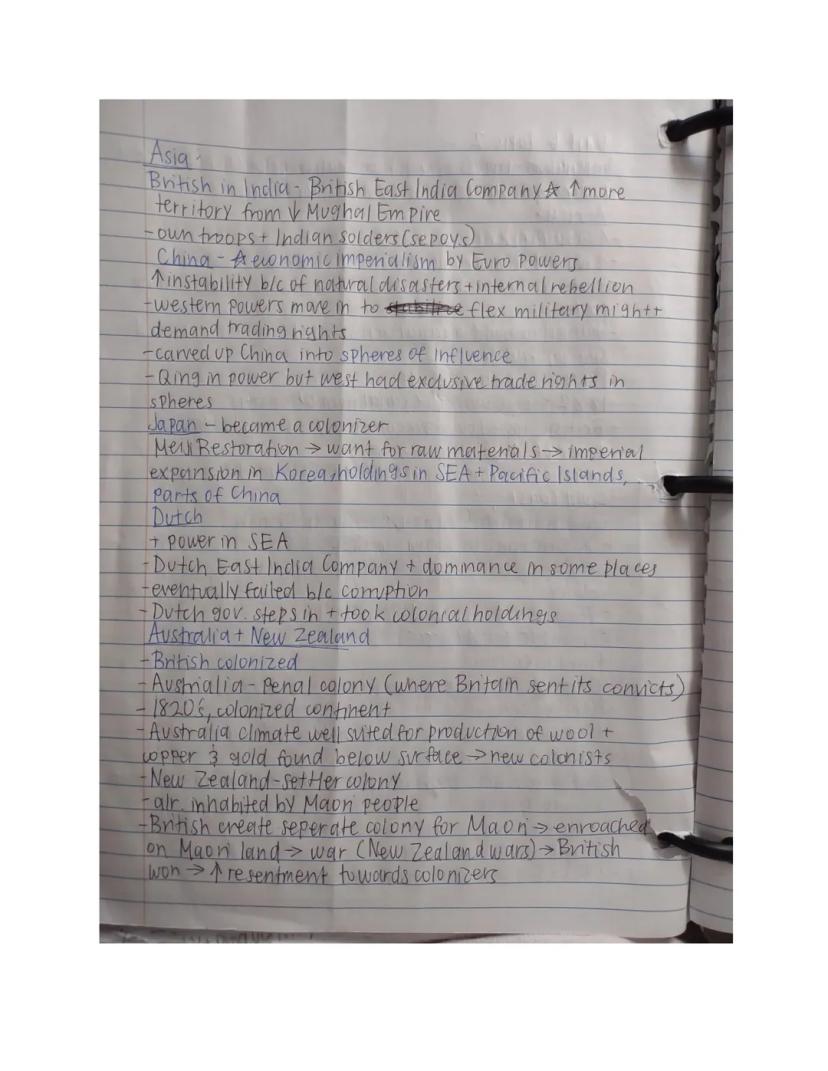 Asia
British in India - British East India Company ☆ ↑ more
territory from ↓ Mughal Empire
- own troops + Indian solders (sepoys)
China - ☆ economic imperialism by Euro powers
↑ instability b/c of natural disasters + internal rebellion
- western powers move in to flex military might +
demand trading rights
- carved up China into spheres of influence
- Qing in power but west had exclusive trade rights in
spheres
Japan - became a colonizer
Meiji Restoration → want for raw materials → imperial
expansion in Korea, holdings in SEA + Pacific Islands,
parts of China
Dutch
+ power in SEA
- Dutch East India Company + dominance in some places
- eventually failed b/c corruption
- Dutch gov. steps in + took colonial holdings
Australia + New Zealand
- British colonized
- Austrialia - penal colony (where Britain sent its convicts)
- 1820s, colonized continent
- Australia climate well suited for production of wool +
copper & gold found below surface → new colonists
- New Zealand - settler colony
- alr. inhabited by Maori people
- British create seperate colony for Maori → enroached
on Maori land → war (New Zealand wars) → British
won → ↑ resentment towards colonizers